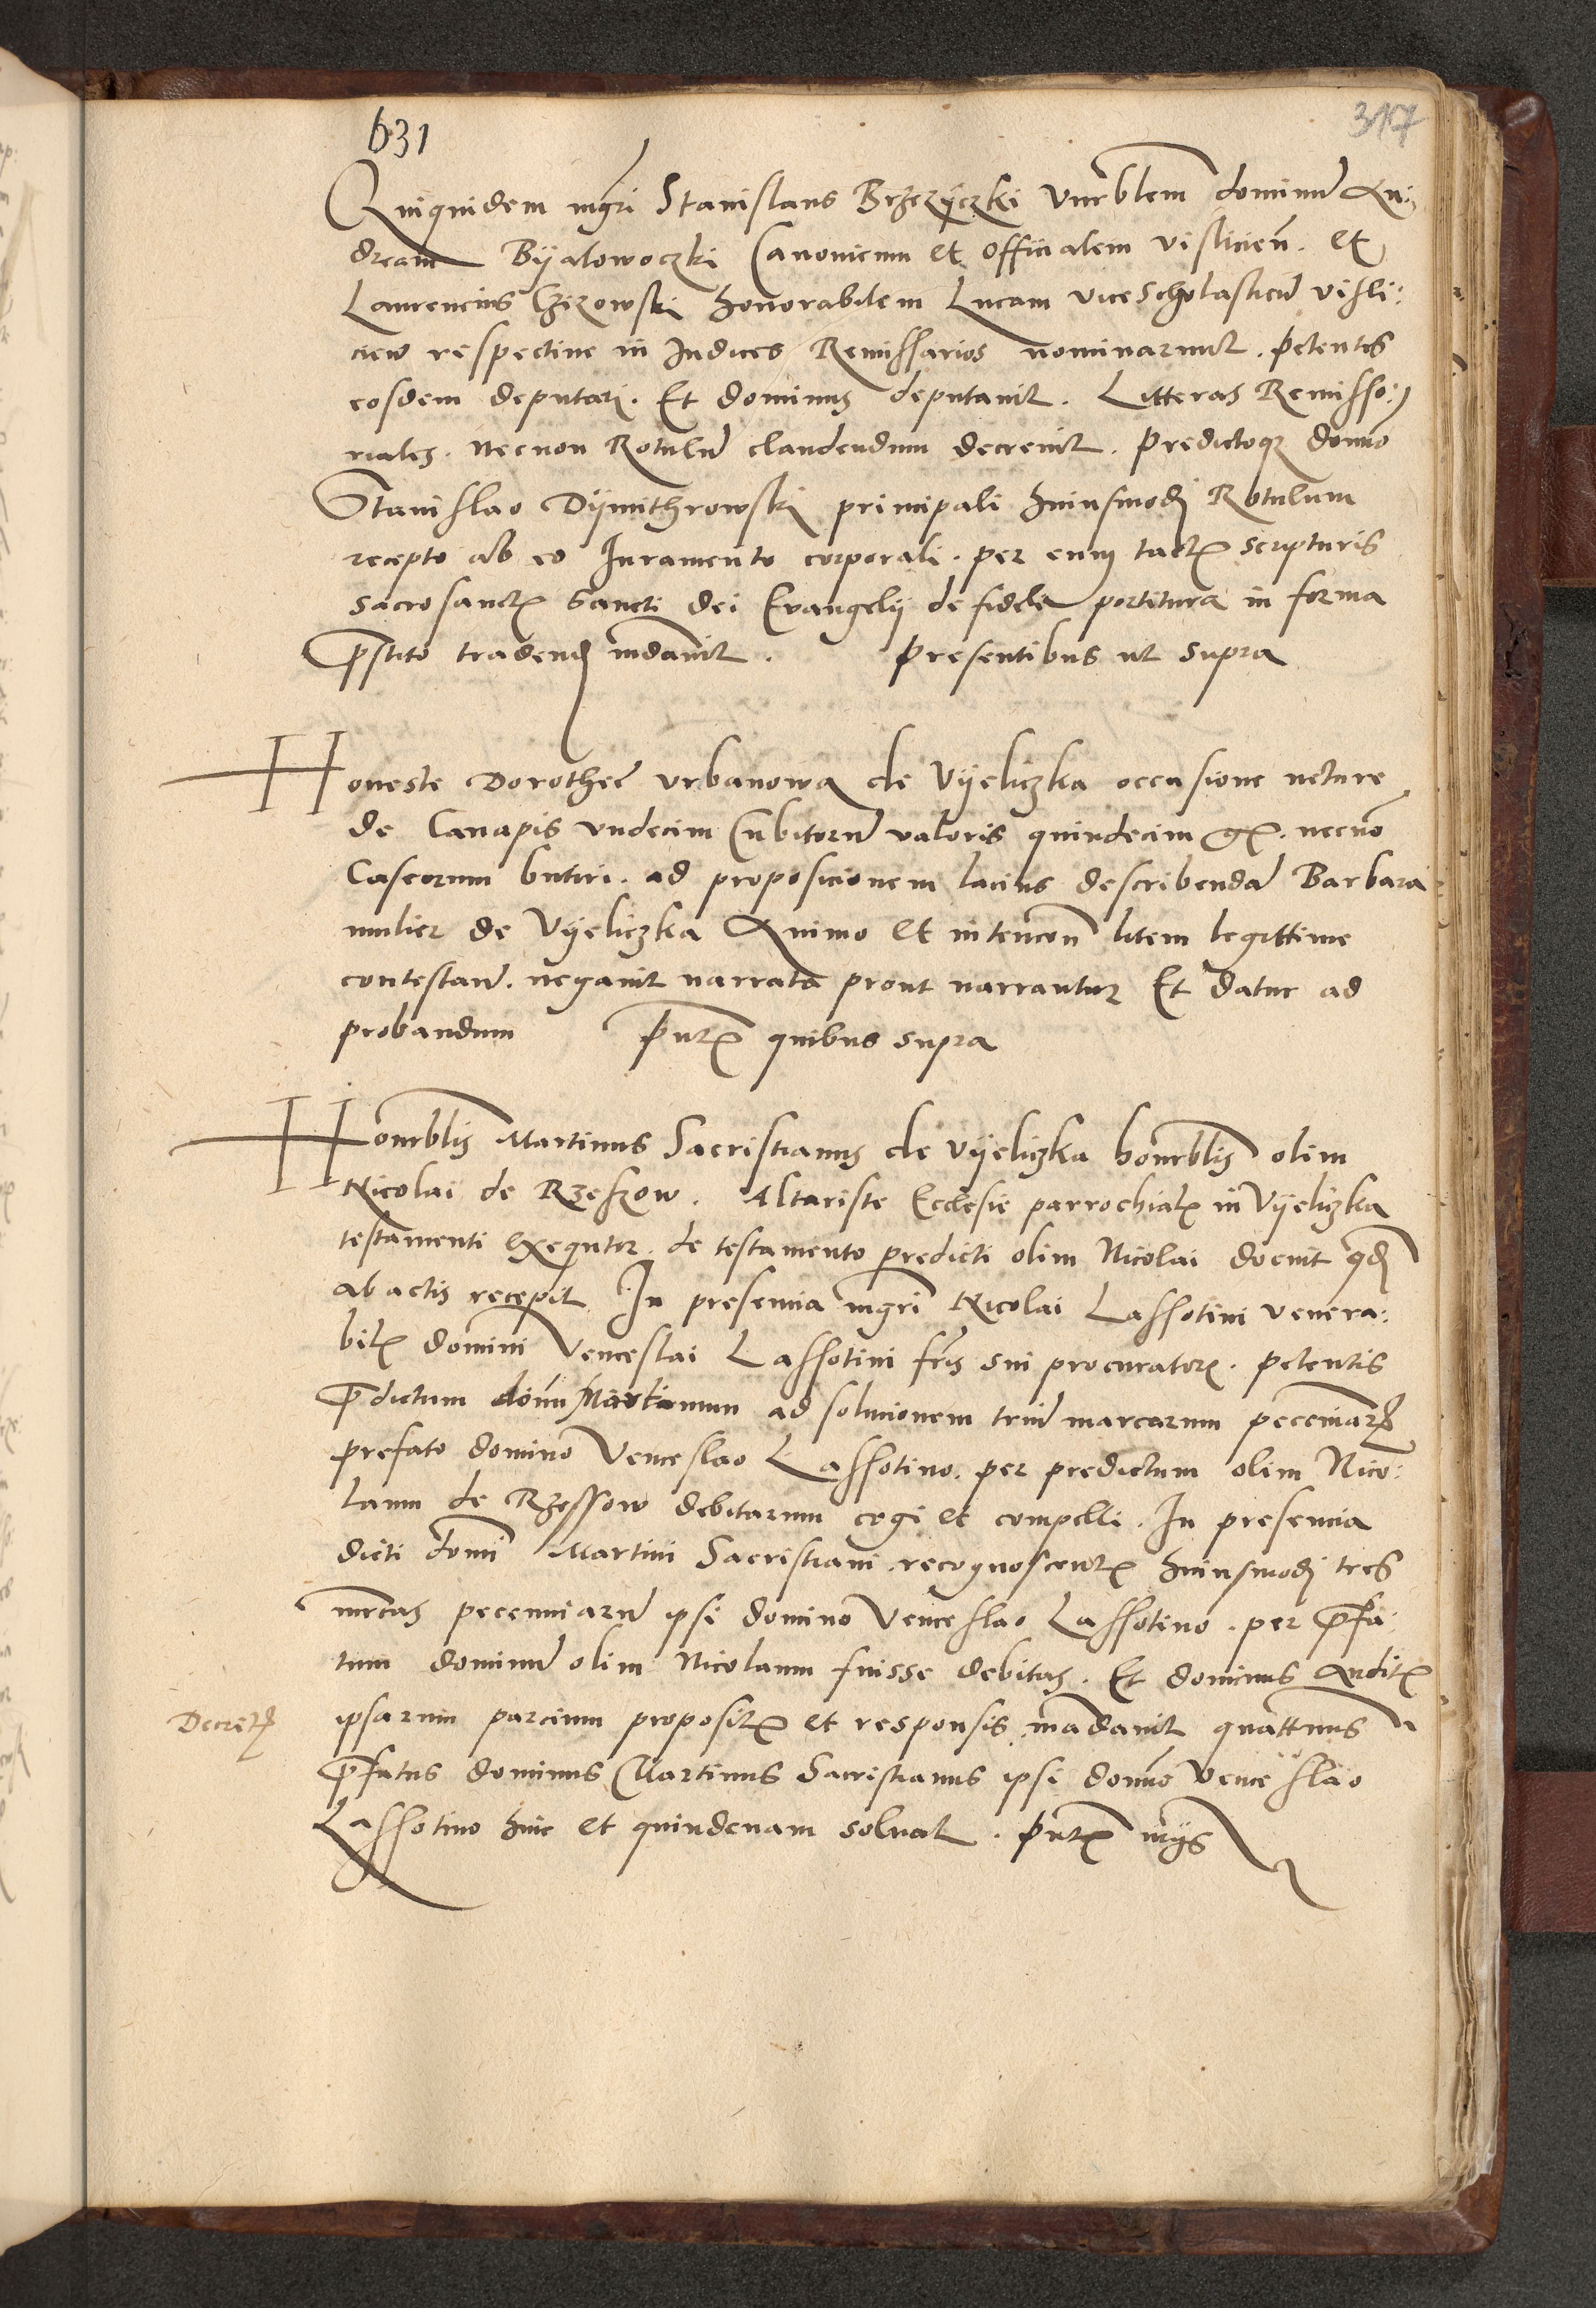 631
317
Quiquidem mgri Stanislaus Brzezyczki Vnrblem dominu An:
dream Byalowoczki Canonicum et Officialem vislicien. et
Laurencius Czizowski honorabilem Lucam viceScholasticu visli:
cien respectiue in Iudices Remissarios nominarunt. petentes
eosdem deputari. Et dominus deputauit. Litteras Remisso:
riales. necnon Rotulu claudendum decreuit. predictoque domino
Stanislao Dymithrowski principali huiusmodi Rotulum
recepto ab eo Iuramento corporali. per eum tactis scripturis
sacrosanctis Sancti dei Evangelij de fideli portitura in forma
prestito tradendum mandauit. Presentibus ut supra
Honeste Dorothee vrbanowa de Vyeliczka occasione
de Canapis vndecim Cubitorum valoris quindecim gr. necno
Caseorum butiri. ad proposicionem lacius describendam Barbara
mulier de Vyeliczka Animo et intencone litem legittime
contestan. negauit narrata prout narrantur Et datur ad
probandum Pntibus quibus supra
Honrblis Martinus Sacristianus de Vyeliczka honrblis olim
Nicolai de Rzeszow. Altariste Ecclesie parrochialis in Vyeliczka
testamenti exequtor. de testamento predicti olim Nicolai docuit quod
ab actis recepit. In presencia mgri Nicolai Lassotini venera:
bilis domini Venceslai Lassotini fris sui procuratoris. petentis
predictum domi Martinum ad solucionem triu marcarum peccuniar
prefato domino Venceslao Lassotino. per predictum olim Nico:
laum de Rzessow debitarum cogi et compelli. In presencia
dicti domi Martini Sacristiani. recognoscentis huiusmodi tres
mrcas peccuniaru ipsi domino Venceslao Lassotino. per prefa:
tum dominu olim Nicolaum fuisse debitas. Et dominus Auditis
Decret
ipsarum parcium propositis et responsis mandauit quattenus
prefatus dominus Martinus Sacristianus ipsi domino Venceslao
Lassotino hinc et quindenam soluat. Pntibus